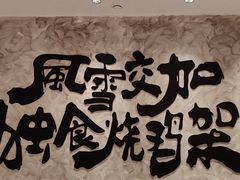 風雪交加
独食烧鸡架